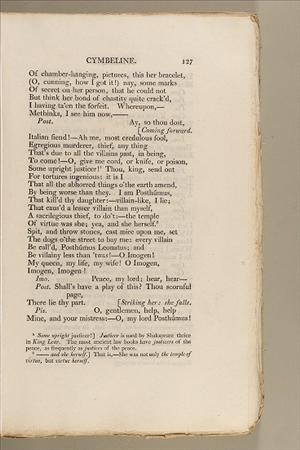 CYMBELINE. 127
Of chamber-hanging, pictures, this her bracelet,
(O, cunning, how I got it!) nay, some marks
Of secret on her person, that he could not
But think her bond of chastity quite crack'd,
I having ta'en the forfeit. Whereupon,—
Methinks, I see him now,——
Post. Ay, so thou dost,
[Coming forward.
Italian fiend!—Ah me, most credulous fool,
Egregious murderer, thief, any thing
That's due to all the villains past, in being,
To come!—O, give me cord, or knife, or poison,
Some upright justicer!⁵ Thou, king, send out
For tortures ingenious: it is I
That all the abhorred things o'the earth amend,
By being worse than they. I am Posthúmus,
That kill'd thy daughter:—villain-like, I lie;
That caus'd a lesser villain than myself,
A sacrilegious thief, to do't:—the temple
Of virtue was she; yea, and she herself.⁶
Spit, and throw stones, cast mire upon me, set
The dogs o'the street to bay me: every villain
Be call'd, Posthúmus Leonatus; and
Be villainy less than 'twas!—O Imogen!
My queen, my life, my wife! O Imogen,
Imogen, Imogen!
Imo. Peace, my lord; hear, hear—
Post. Shall's have a play of this? Thou scornful
page,
There lie thy part. [Striking her: she falls.
Pis. O, gentlemen, help, help
Mine, and your mistress:—O, my lord Posthúmus!
⁵ Some upright justicer!] Justicer is used by Shakspeare thrice
in King Lear. The most ancient law books have justicers of the
peace, as frequently as justices of the peace.
⁶ —— and she herself.] That is,—She was not only the temple of
virtue, but virtue herself.